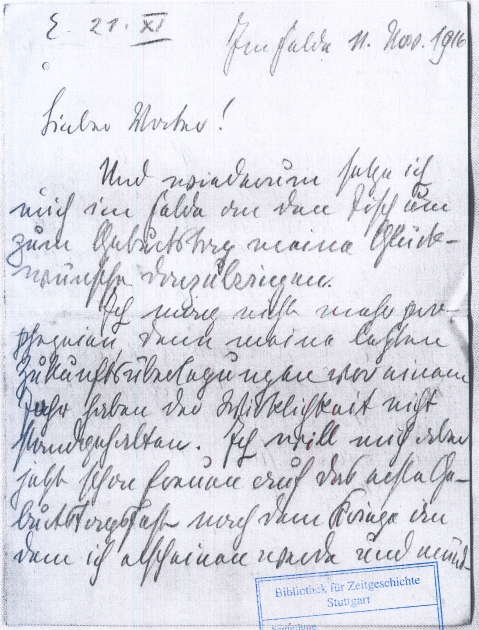 E. 21. XI
Im Felde 11. Nov. 1916
Lieber Vater!
Und wiederum setze ich
mich im Felde an den Tisch um
zum Geburtstag meine Glück-
wünsche darzubringen.
Ich mag nicht mehr pro-
phezeien, denn meine letzten
Zukunftsüberlegungen vor einem
Jahr haben der Wirklichkeit nicht
standgehalten. Ich will mich aber
jetzt schon freuen auf das erste Ge-
burtstagsfest nach dem Kriege an
dem ich erscheinen werde und
Bibliothek für Zeitgeschichte
Stuttgart
Sammlung